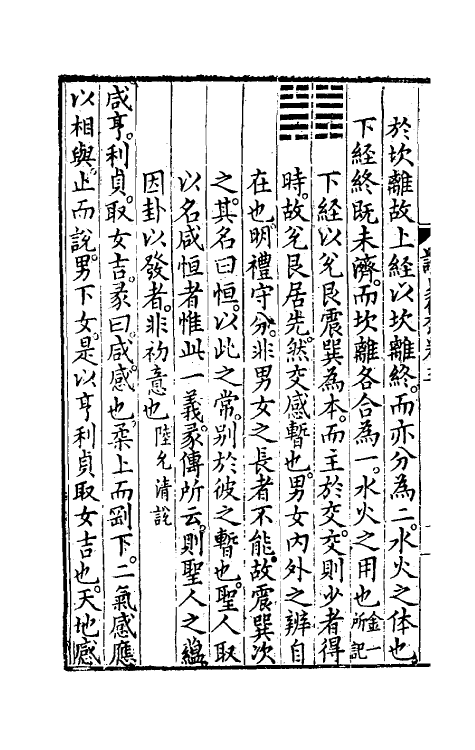 於坎離故上經以坎離終而亦分為二水火之体也
下經終既未濟而坎離各合為一水火之用也金一所記
下經以兌艮震巽為本而主於交交則少者得
時故兌艮居先然交感暫也男女内外之辨自
在也明禮守分非男女之長者不能故震巽次
之其名曰恒以此之常别於彼之暫也聖人取
以名咸恒者惟此一義彖傳所云則聖人之藴
因卦以發者非初意也陸允清說
咸亨利貞取女吉彖曰咸感也柔上而剛下二氣感應
以相與止而說男下女是以亨利貞取女吉也天地感